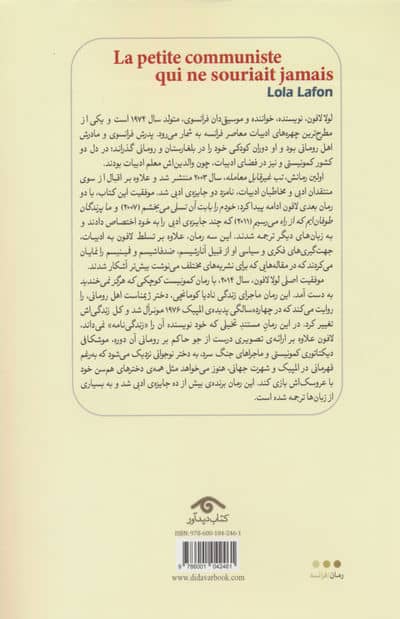 La petite communiste
qui ne souriait jamais
Lola Lafon
لولا لافون، نویسنده، خواننده و موسیقی‌دان فرانسوی، متولد سال ۱۹۷۲ است و یکی از
مطرح‌ترین چهره‌های ادبیات معاصر فرانسه به شمار می‌رود. پدرش فرانسوی و مادرش
اهل رومانی بود و او دوران کودکی خود را در بلغارستان و رومانی گذراند؛ در دل دو
کشور کمونیستی و نیز در فضای ادبیات، چون والدین‌اش معلم ادبیات بودند.
اولین رمانش، تب غیرقابل معامله، سال ۲۰۰۳ منتشر شد و علاوه بر اقبال از سوی
منتقدان ادبی و مخاطبان ادبیات، نامزد دو جایزه‌ی ادبی شد. موفقیت این کتاب، با دو
رمان بعدی لافون ادامه پیدا کرد: خودم را بابت آن تسلی می‌بخشم (۲۰۰۷) و ما پرندگان
طوفان‌ایم که از راه می‌رسیم (۲۰۱۱) که چند جایزه‌ی ادبی را به خود اختصاص دادند و
به زبان‌های دیگر ترجمه شدند. این سه رمان، علاوه بر تسلط لافون به ادبیات،
جهت‌گیری‌های فکری و سیاسی او از قبیل آنارشیسم، ضدفاشیسم و فمینیسم را نمایان
می‌کردند که در مقاله‌هایی که برای نشریه‌های مختلف می‌نوشت بیش‌تر آشکار شدند.
موفقیت اصلی لولا لافون، سال ۲۰۱۴، با رمان کمونیست کوچکی که هرگز نمی‌خندید
به دست آمد. این رمان ماجرای زندگی نادیا کومانچی، دختر ژیمناست اهل رومانی، را
روایت می‌کند که در چهارده‌سالگی پدیده‌ی المپیک ۱۹۷۶ مونترآل شد و کل زندگی‌اش
تغییر کرد. در این رمانِ مستندِ تخیلی که خود نویسنده آن را «زندگی‌نامه» نمی‌داند،
لافون علاوه بر ارائه‌ی تصویری درست از جو حاکم بر رومانی آن دوره، موشکافی
دیکتاتوری کمونیستی و ماجراهای جنگ سرد، به دختر نوجوانی نزدیک می‌شود که به‌رغم
قهرمانی در المپیک و شهرت جهانی، هنوز می‌خواهد مثل همه‌ی دخترهای هم‌سن خود
با عروسک‌اش بازی کند. این رمان برنده‌ی بیش از ده جایزه‌ی ادبی شد و به بسیاری
از زبان‌ها ترجمه شده است.
کتاب دیدآور
ISBN: 978-600-104-246-1
9 786001 042461
www.didavarbook.com
رمان | فرانسه